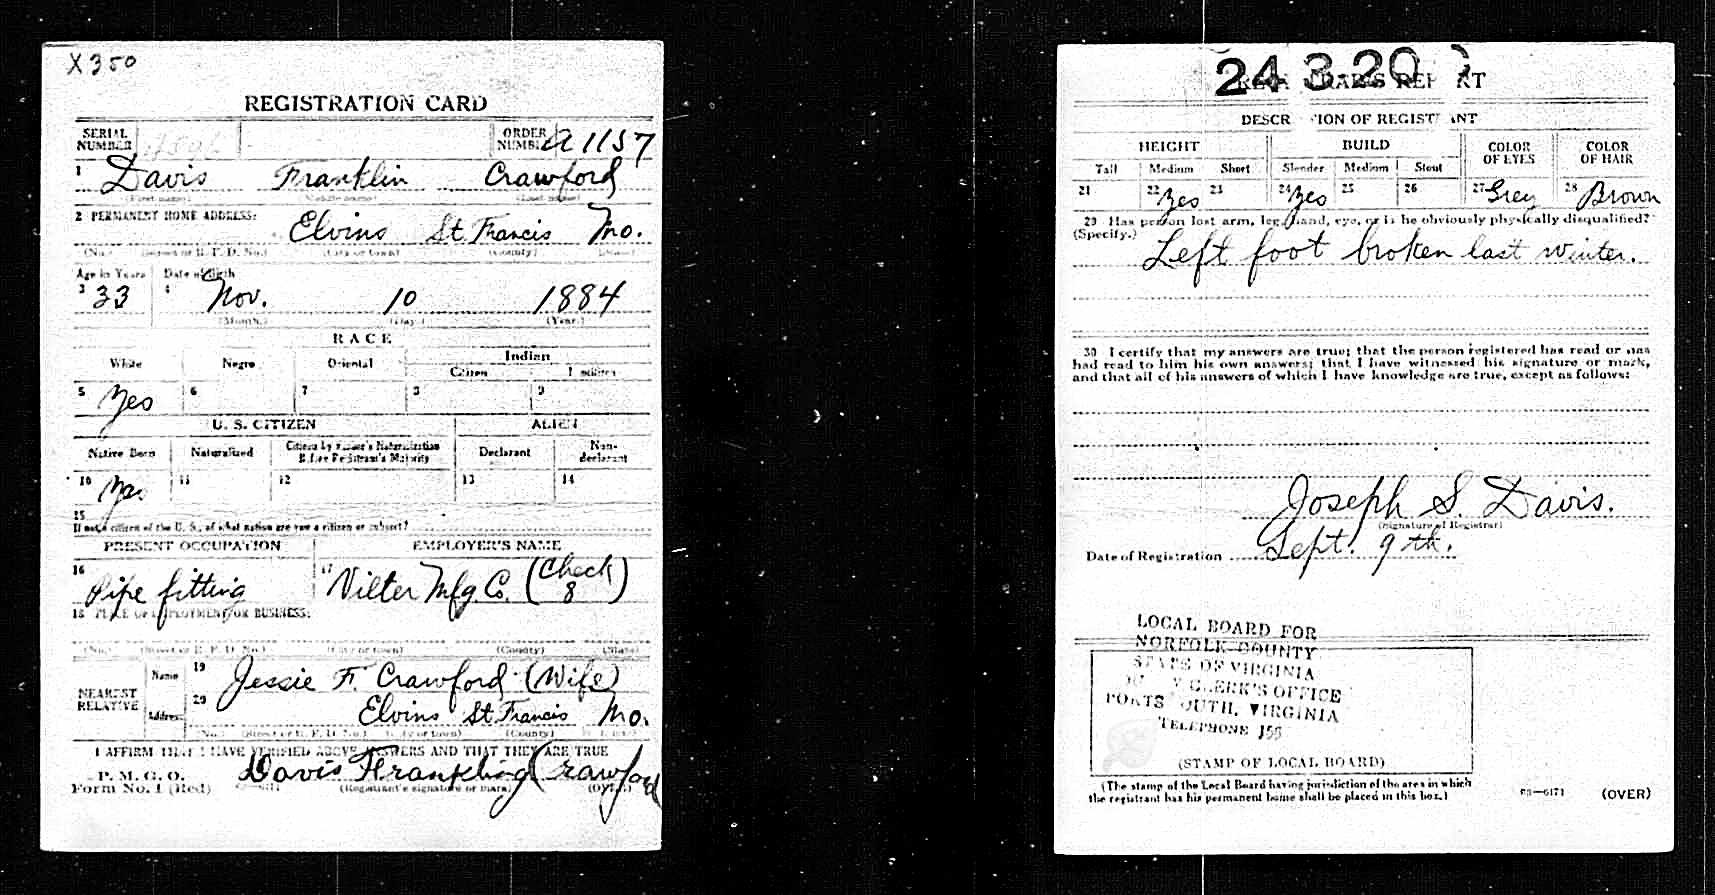 X350
REGISTRATION CARD
SERIAL NUMBER ORDER NUMBER A1157
1 Davis Franklin Crawford
(First name) (Middle name) (Last name)
2 PERMANENT HOME ADDRESS:
Elvins St. Francis Mo.
(No.) (Street or R. F. D. No.) (City or town) (County) (State)
Age in Years Date of Birth
3 33 4 Nov. 10 1884
(Month.) (Day.) (Year.)
RACE
White Negro Oriental Indian
Citizen
5 Yes 6 7 8 9
U. S. CITIZEN ALIEN
Native Born Naturalized Citizen by Father's Naturalization Before Registrant's Majority Declarant Non-declarant
10 Yes 11 12 13 14
15
If not a citizen of the U. S., of what nation are you a citizen or subject?
PRESENT OCCUPATION EMPLOYER'S NAME
16 Pipe fitting 17 Vilter Mfg. Co. (Check 8)
18 PLACE OF EMPLOYMENT OR BUSINESS:
(No.) (Street or R. F. D. No.) (City or town) (County) (State)
NEAREST RELATIVE Name 19 Jessie F. Crawford (Wife)
Address 20 Elvins St Francis Mo.
(No.) (Street or R. F. D. No.) (City or town) (County)
I AFFIRM THAT I HAVE VERIFIED ABOVE ANSWERS AND THAT THEY ARE TRUE
P. M. G. O.
Form No. 1 (Red) Davis Frankling Crawford
(Registrant's signature or mark) (OVER)
24 3 20
DESCR TION OF REGIST ANT
HEIGHT BUILD COLOR OF EYES COLOR OF HAIR
Tall Medium Short Slender Medium Stout
21 22 Yes 23 24 Yes 25 26 27 Grey 28 Brown
29 Has person lost arm, leg, hand, eye, or is he obviously physically disqualified?
(Specify.) Left foot broken last winter.
30 I certify that my answers are true; that the person registered has read or has
had read to him his own answers; that I have witnessed his signature or mark,
and that all of his answers of which I have knowledge are true, except as follows:
Joseph S. Davis.
(Signature of Registrar)
Date of Registration Sept. 9th.
LOCAL BOARD FOR
NORFOLK COUNTY
STATE OF VIRGINIA
CLERK'S OFFICE
PORTSMOUTH, VIRGINIA
TELEPHONE 155
(STAMP OF LOCAL BOARD)
(The stamp of the Local Board having jurisdiction of the area in which
the registrant has his permanent home shall be placed in this box.)
03—6171 (OVER)